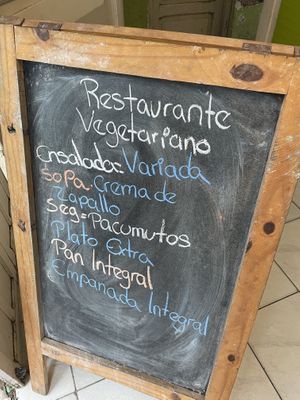 Restaurante
Vegetariano
Ensalada= Variada
Sopa. Crema de
Zapallo
Seg= Pacumutos
Plato Extra
Pan Integral
Empanada Integral